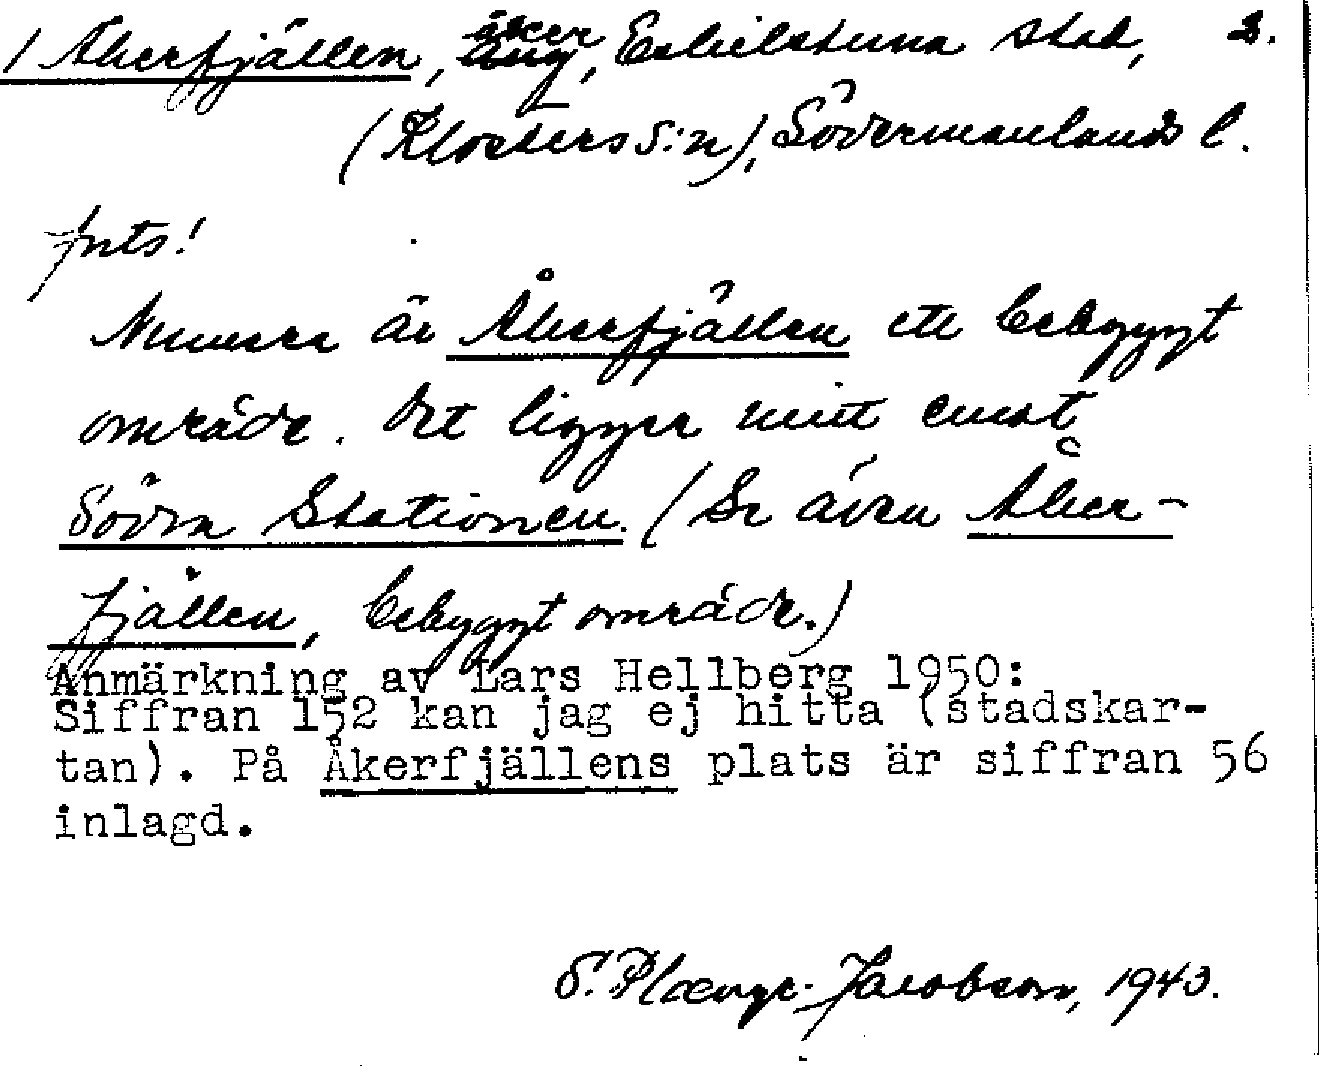 / Åkerfjällen, åker, Eskilstuna stad, 2.
(Klosters s:n), Södermanlands l.
forts!
Numera är Åkerfjällen ett bebyggt
område. Det ligger mitt emot
Södra Stationen. (Se även Åker-
fjällen, bebyggt område.)
Anmärkning av Lars Hellberg 1950:
Siffran 152 kan jag ej hitta (stadskar-
tan). På Åkerfjällens plats är siffran 56
inlagd.
S. Jacobson, 1943.